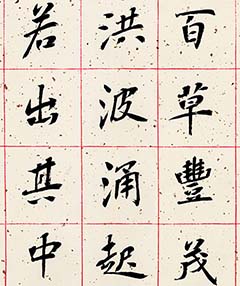 百草豐茂
洪波涌起
若出其中